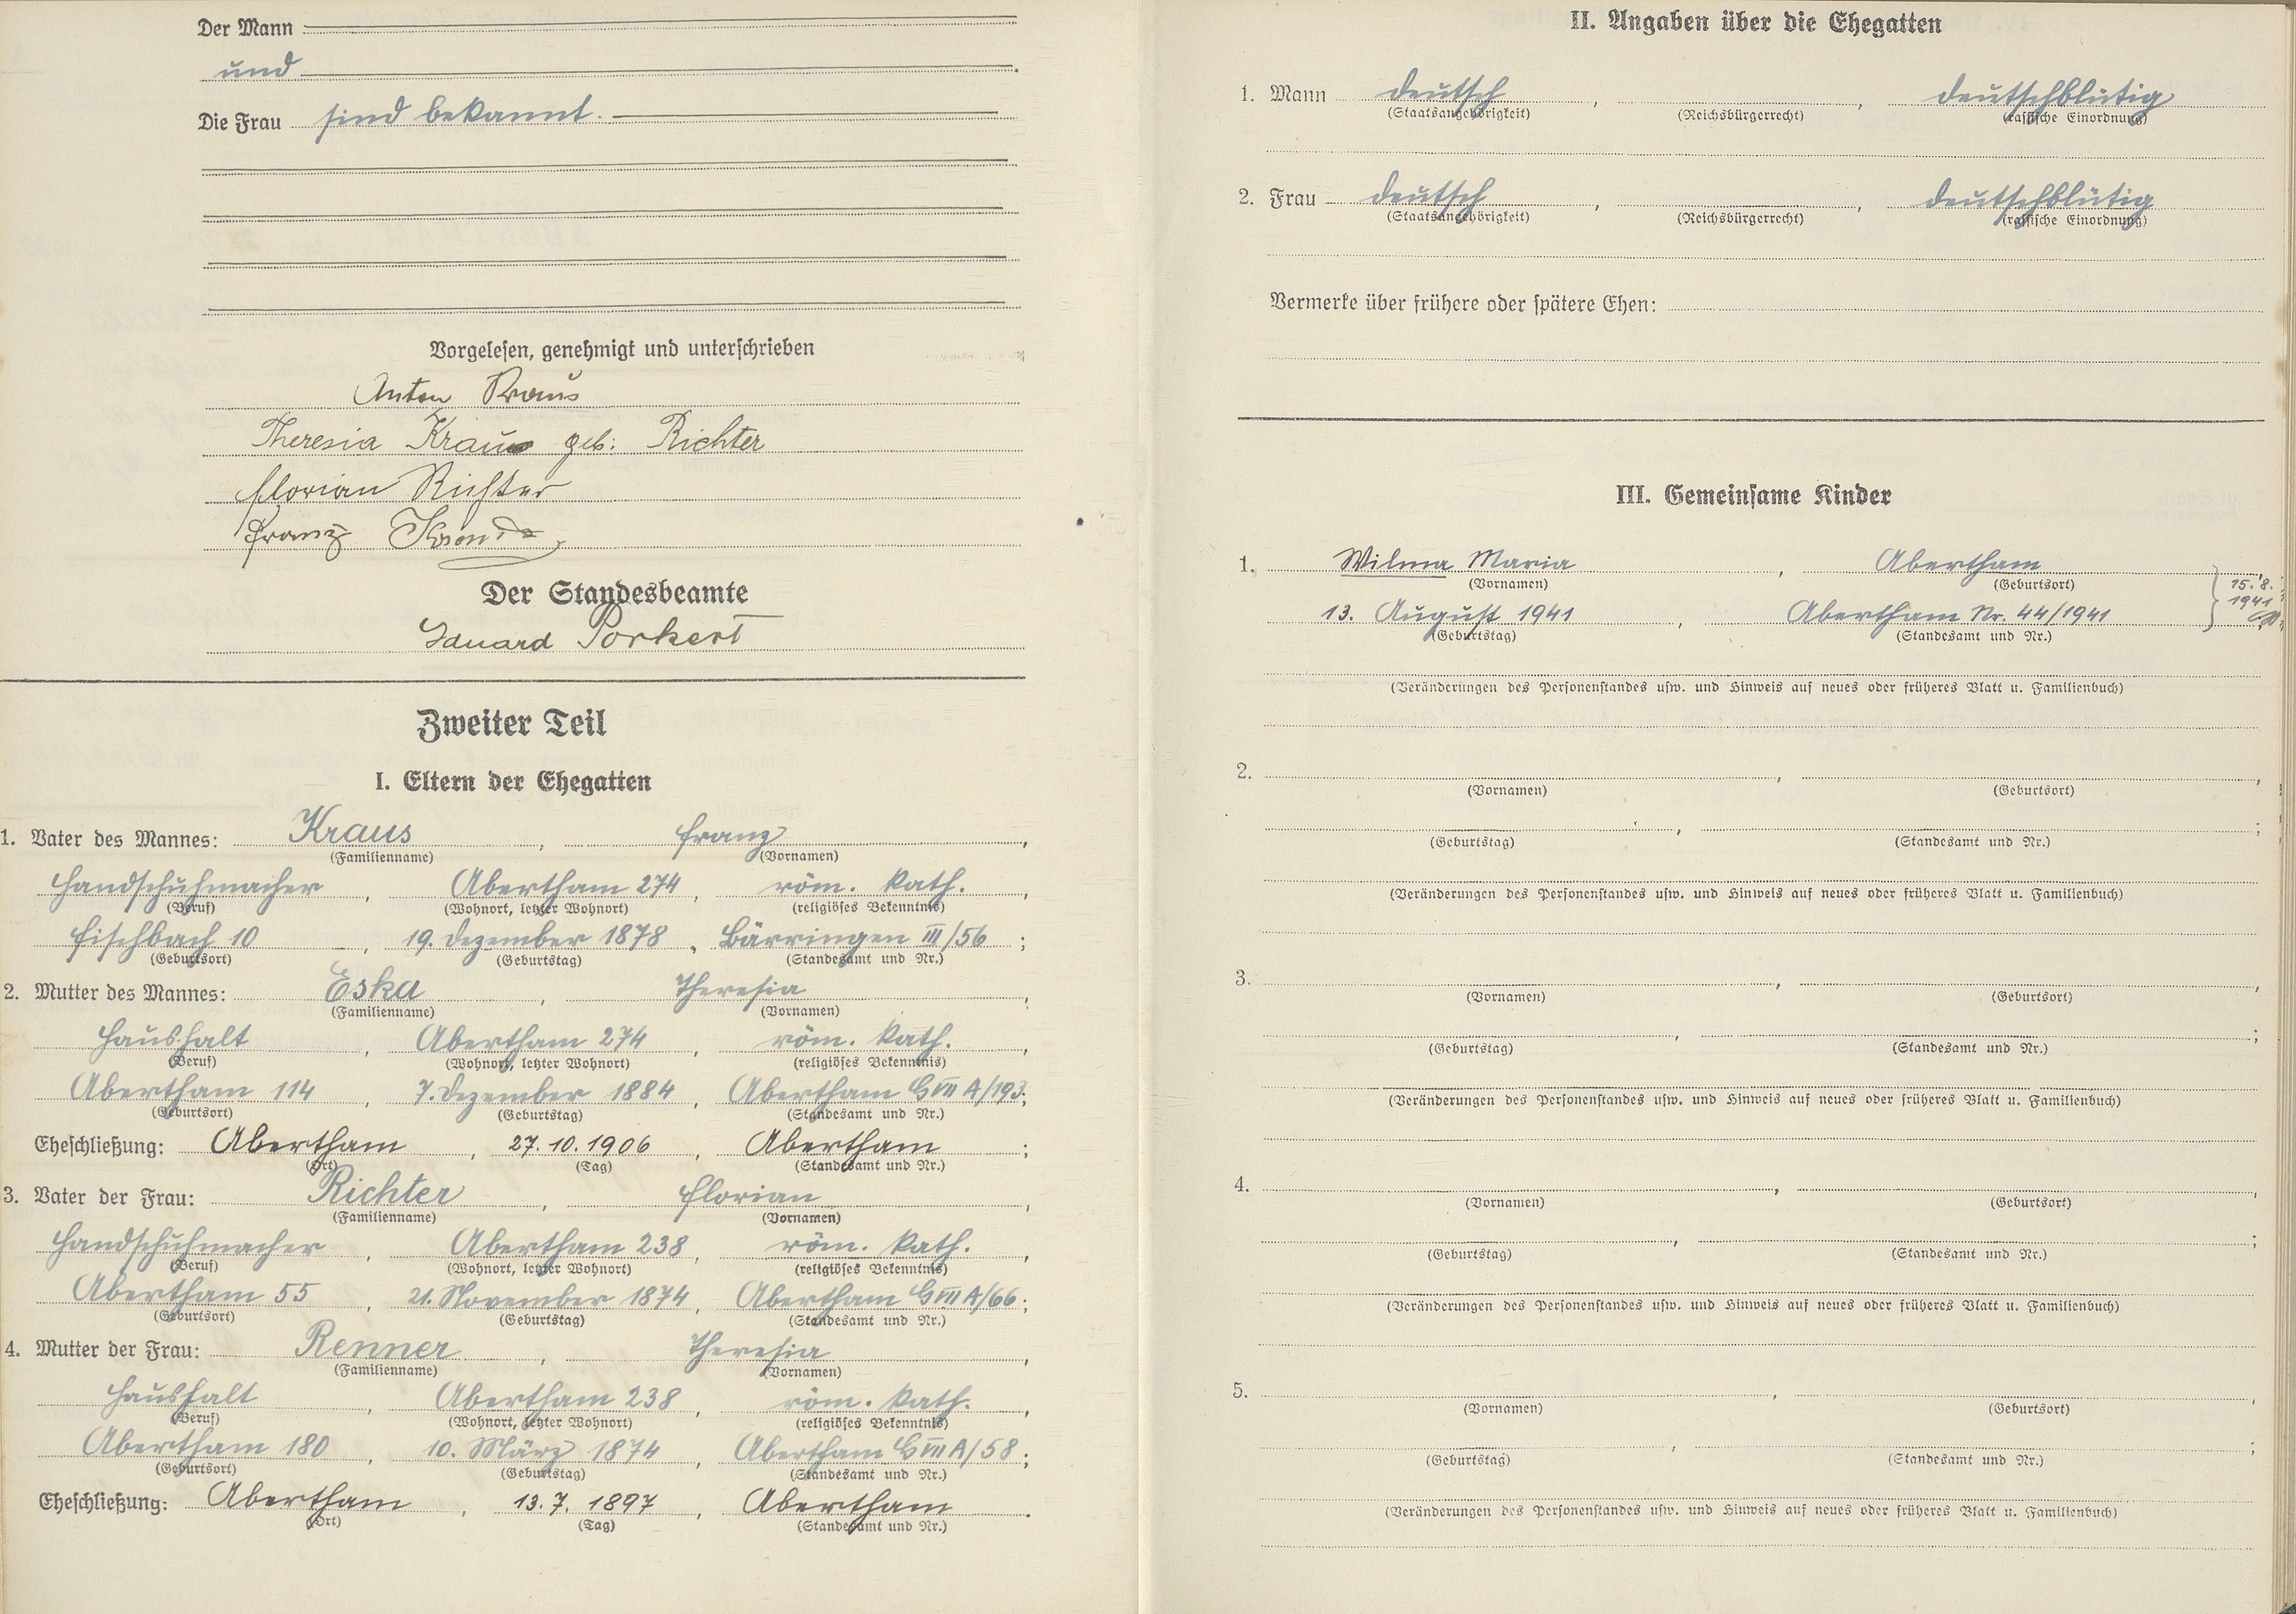 Der Mann
und
Die Frau sind bekannt.
Vorgelesen, genehmigt und unterschrieben
Anton Kraus
Theresia Kraus geb: Richter
Florian Richter
Franz
Der Standesbeamte
Eduard Porkert
Zweiter Teil
I. Eltern der Ehegatten
1. Vater des Mannes: Kraus, Franz,
(Familienname) (Vornamen)
Handschuhmacher, Abertham 274, röm. kath.,
(Beruf) (Wohnort, letzter Wohnort) (religiöses Bekenntnis)
Fischbach 10, 19. Dezember 1878, Bärringen III/56;
(Geburtsort) (Geburtstag) (Standesamt und Nr.)
2. Mutter des Mannes: Eska, Theresia,
(Familienname) (Vornamen)
Haushalt, Abertham 274, röm. kath.,
(Beruf) (Wohnort, letzter Wohnort) (religiöses Bekenntnis)
Abertham 114, 7. Dezember 1884, Abertham G VII A/193;
(Geburtsort) (Geburtstag) (Standesamt und Nr.)
Eheschließung: Abertham, 27.10.1906, Abertham;
(Ort) (Tag) (Standesamt und Nr.)
3. Vater der Frau: Richter, Florian,
(Familienname) (Vornamen)
Handschuhmacher, Abertham 238, röm. kath.,
(Beruf) (Wohnort, letzter Wohnort) (religiöses Bekenntnis)
Abertham 55, 21. November 1874, Abertham G VII A/66;
(Geburtsort) (Geburtstag) (Standesamt und Nr.)
4. Mutter der Frau: Renner, Theresia,
(Familienname) (Vornamen)
Haushalt, Abertham 238, röm. kath.,
(Beruf) (Wohnort, letzter Wohnort) (religiöses Bekenntnis)
Abertham 180, 10. März 1874, Abertham G VII A/58;
(Geburtsort) (Geburtstag) (Standesamt und Nr.)
Eheschließung: Abertham, 13.7.1897, Abertham.
(Ort) (Tag) (Standesamt und Nr.)
II. Angaben über die Ehegatten
1. Mann deutsch, , deutschblütig
(Staatsangehörigkeit) (Reichsbürgerrecht) (rassische Einordnung)
2. Frau deutsch, , deutschblütig
(Staatsangehörigkeit) (Reichsbürgerrecht) (rassische Einordnung)
Vermerke über frühere oder spätere Ehen:
III. Gemeinsame Kinder
1. Wilma Maria, Abertham
(Vornamen) (Geburtsort)
15.8.
1941
13. August 1941, Abertham Nr. 44/1941
(Geburtstag) (Standesamt und Nr.)
(Veränderungen des Personenstandes usw. und Hinweis auf neues oder früheres Blatt u. Familienbuch)
2. , ,
(Vornamen) (Geburtsort)
, ;
(Geburtstag) (Standesamt und Nr.)
(Veränderungen des Personenstandes usw. und Hinweis auf neues oder früheres Blatt u. Familienbuch)
3. , ,
(Vornamen) (Geburtsort)
, ;
(Geburtstag) (Standesamt und Nr.)
(Veränderungen des Personenstandes usw. und Hinweis auf neues oder früheres Blatt u. Familienbuch)
4. , ,
(Vornamen) (Geburtsort)
, ;
(Geburtstag) (Standesamt und Nr.)
(Veränderungen des Personenstandes usw. und Hinweis auf neues oder früheres Blatt u. Familienbuch)
5. , ,
(Vornamen) (Geburtsort)
, ;
(Geburtstag) (Standesamt und Nr.)
(Veränderungen des Personenstandes usw. und Hinweis auf neues oder früheres Blatt u. Familienbuch)